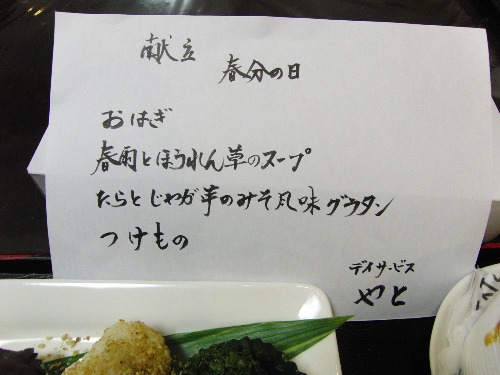 献立
春分の日
おはぎ
春雨とほうれん草のスープ
たらとじゃが芋のみそ風味グラタン
つけもの
デイサービス
やと